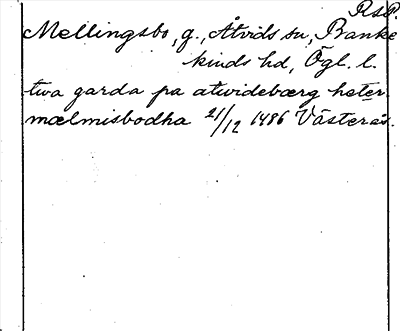 RAP.
Mellingsbo, g., Åtvids sn, Banke
kinds hd, Ögl. l.
twa garda pa atwidebærg heter
mælmisbodha 21/12 1486 Västerås.